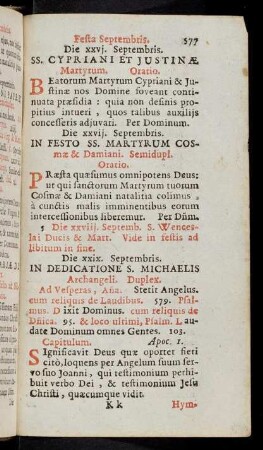 Festa Septembris. 577
Die xxvj. Septembris.
SS. CYPRIANI ET JUSTINÆ
Martyrum. Oratio.
BEatorum Martyrum Cypriani & Ju-
stinæ nos Domine foveant conti-
nuata præsidia : quia non desinis pro-
pitius intueri , quos talibus auxilijs
concesseris adjuvari. Per Dominum.
Die xxvij. Septembris.
IN FESTO SS. MARTYRUM COS-
mæ & Damiani. Semidupl.
Oratio.
PRæsta quæsumus omnipotens Deus:
ut qui sanctorum Martyrum tuorum
Cosmæ & Damiani natalitia colimus ,
à cunctis malis imminentibus eorum
intercessionibus liberemur. Per Dñm.
Die xxviij. Septemb. S. Wences-
lai Ducis & Mart. Vide in festis ad
libitum in fine.
Die xxix. Septembris.
IN DEDICATIONE S. MICHAELIS
Archangeli. Duplex.
Ad Vesperas, Aña. Stetit Angelus.
cum reliquis de Laudibus. 579. Psal-
mus. Dixit Dominus. cum reliquis de
Dñica. 95. & loco ultimi, Psalm. Lau-
date Dominum omnes Gentes. 103.
Capitulum. Apoc. 1.
SIgnificavit Deus quæ oportet fieri
citò, loquens per Angelum suum ser-
vo suo Joanni, qui testimonium perhi-
buit verbo Dei , & testimonium Jesu
Christi, quæcumque vidit.
K k Hym-